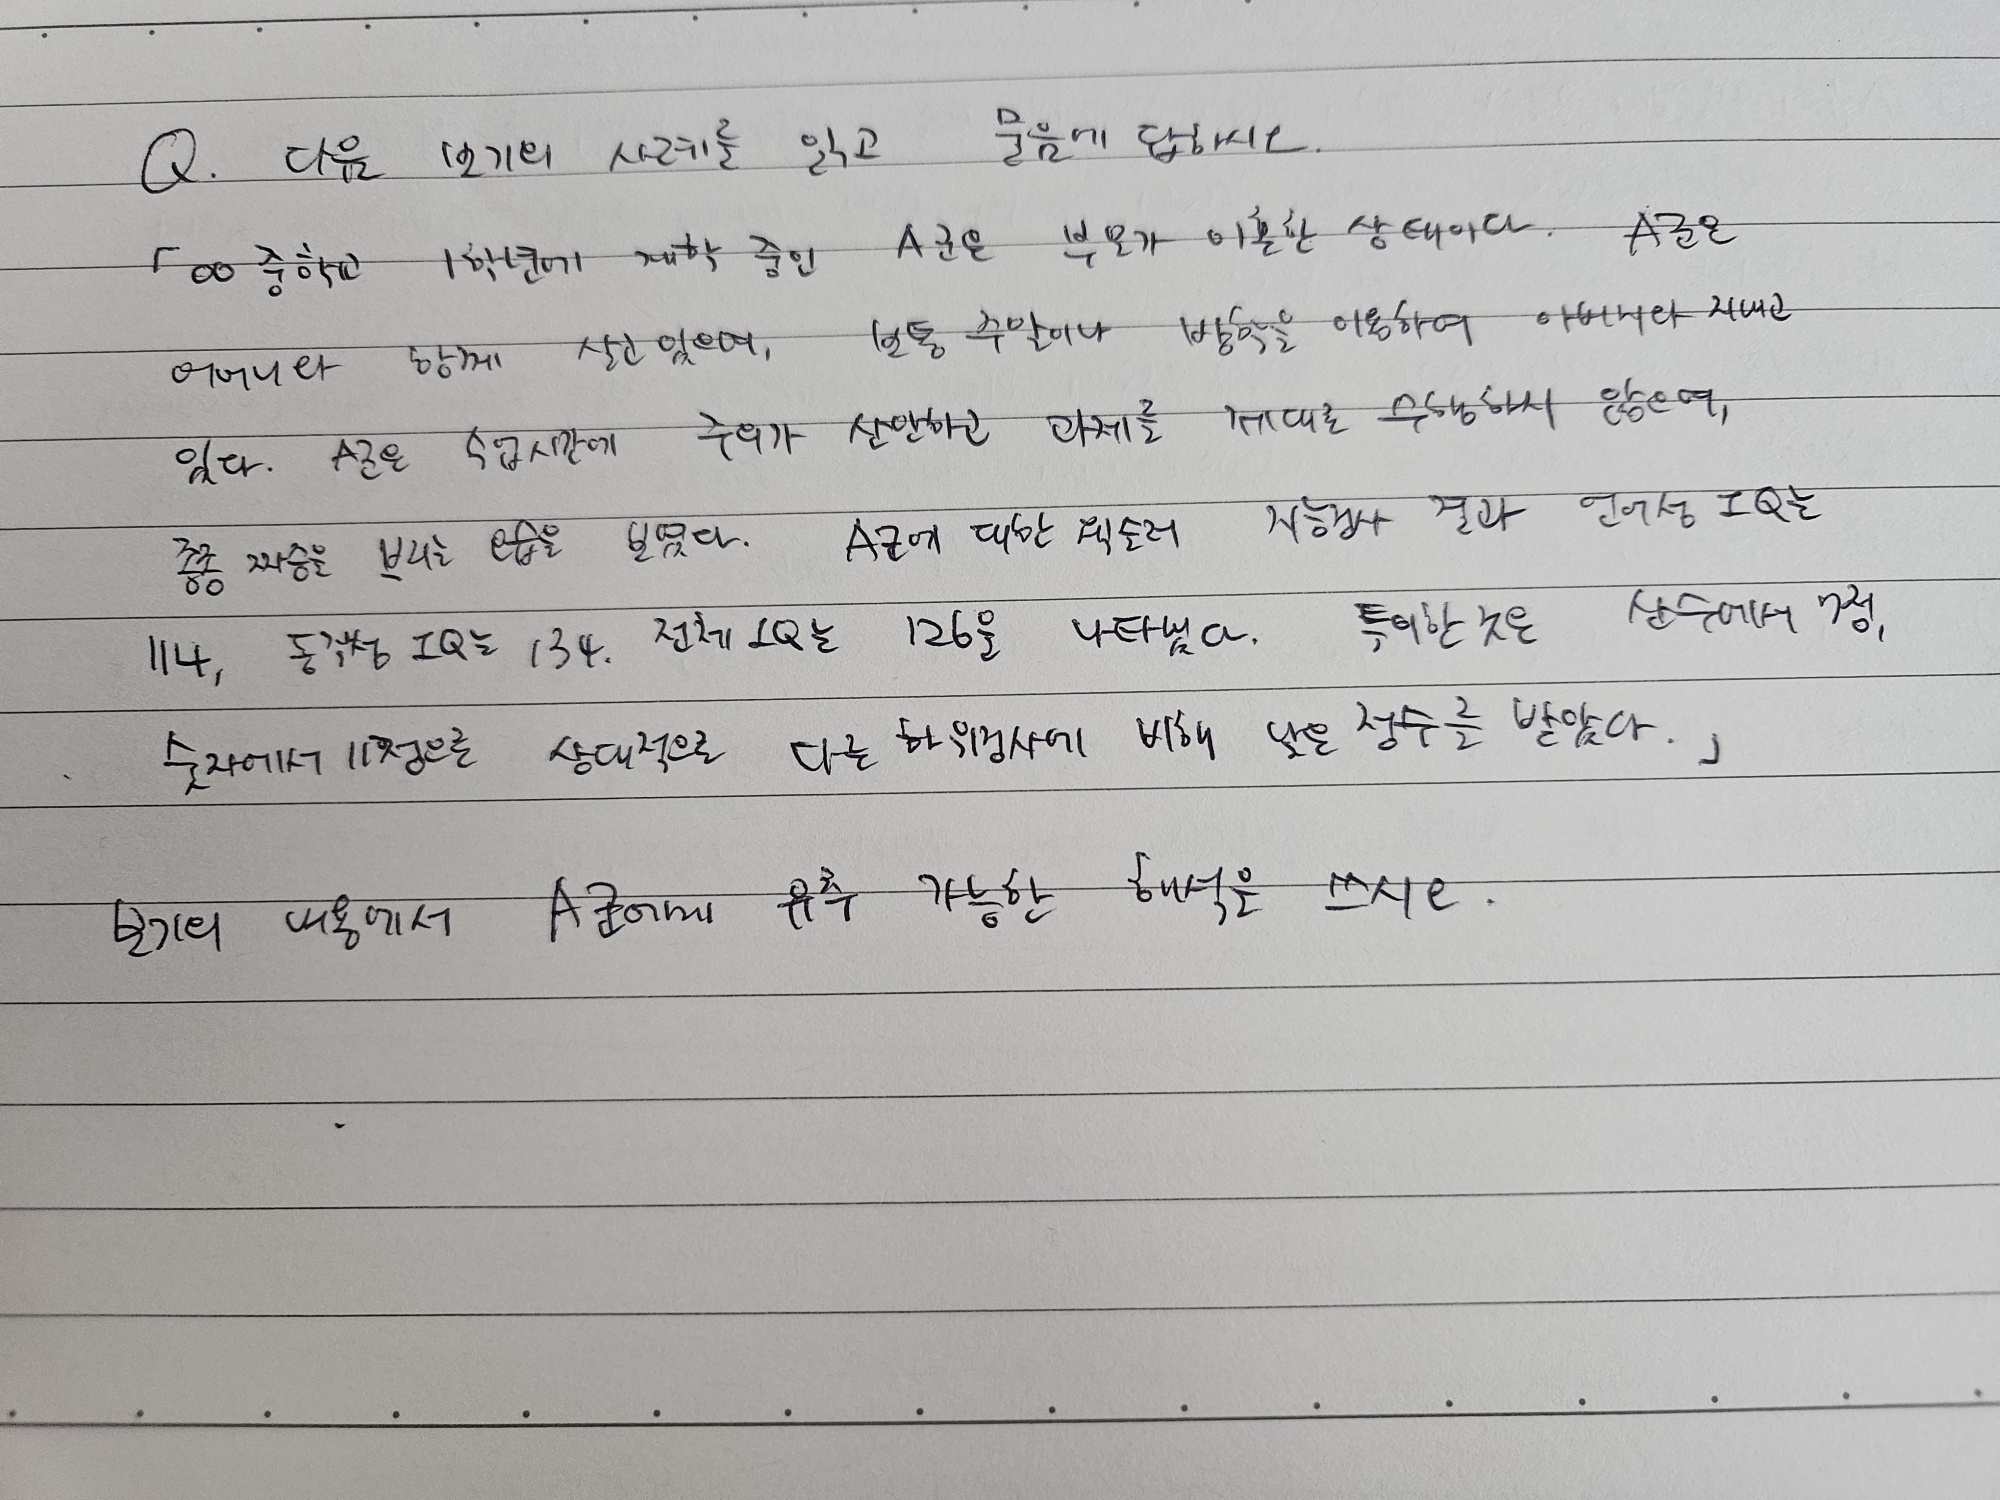 Q. 다음 보기의 사례를 읽고 물음에 답하시오.
「00 중학교 1학년에 재학 중인 A군은 부모가 이혼한 상태이다. A군은
어머니와 함께 살고 있으며, 보통 주말이나 방학을 이용하여 아버지와 지내고
있다. A군은 수업시간에 주의가 산만하고 과제를 제대로 수행하지 않으며,
종종 짜증을 부리는 모습을 보였다. A군에 대한 웩슬러 지능검사 결과 언어성 IQ는
114, 동작성 IQ는 134. 전체 IQ는 126을 나타냈다. 특이한 것은 산수에서 7점,
숫자에서 11점으로 상대적으로 다른 하위검사에 비해 낮은 점수를 받았다.」
보기의 내용에서 A군에게 유추 가능한 해석을 쓰시오.